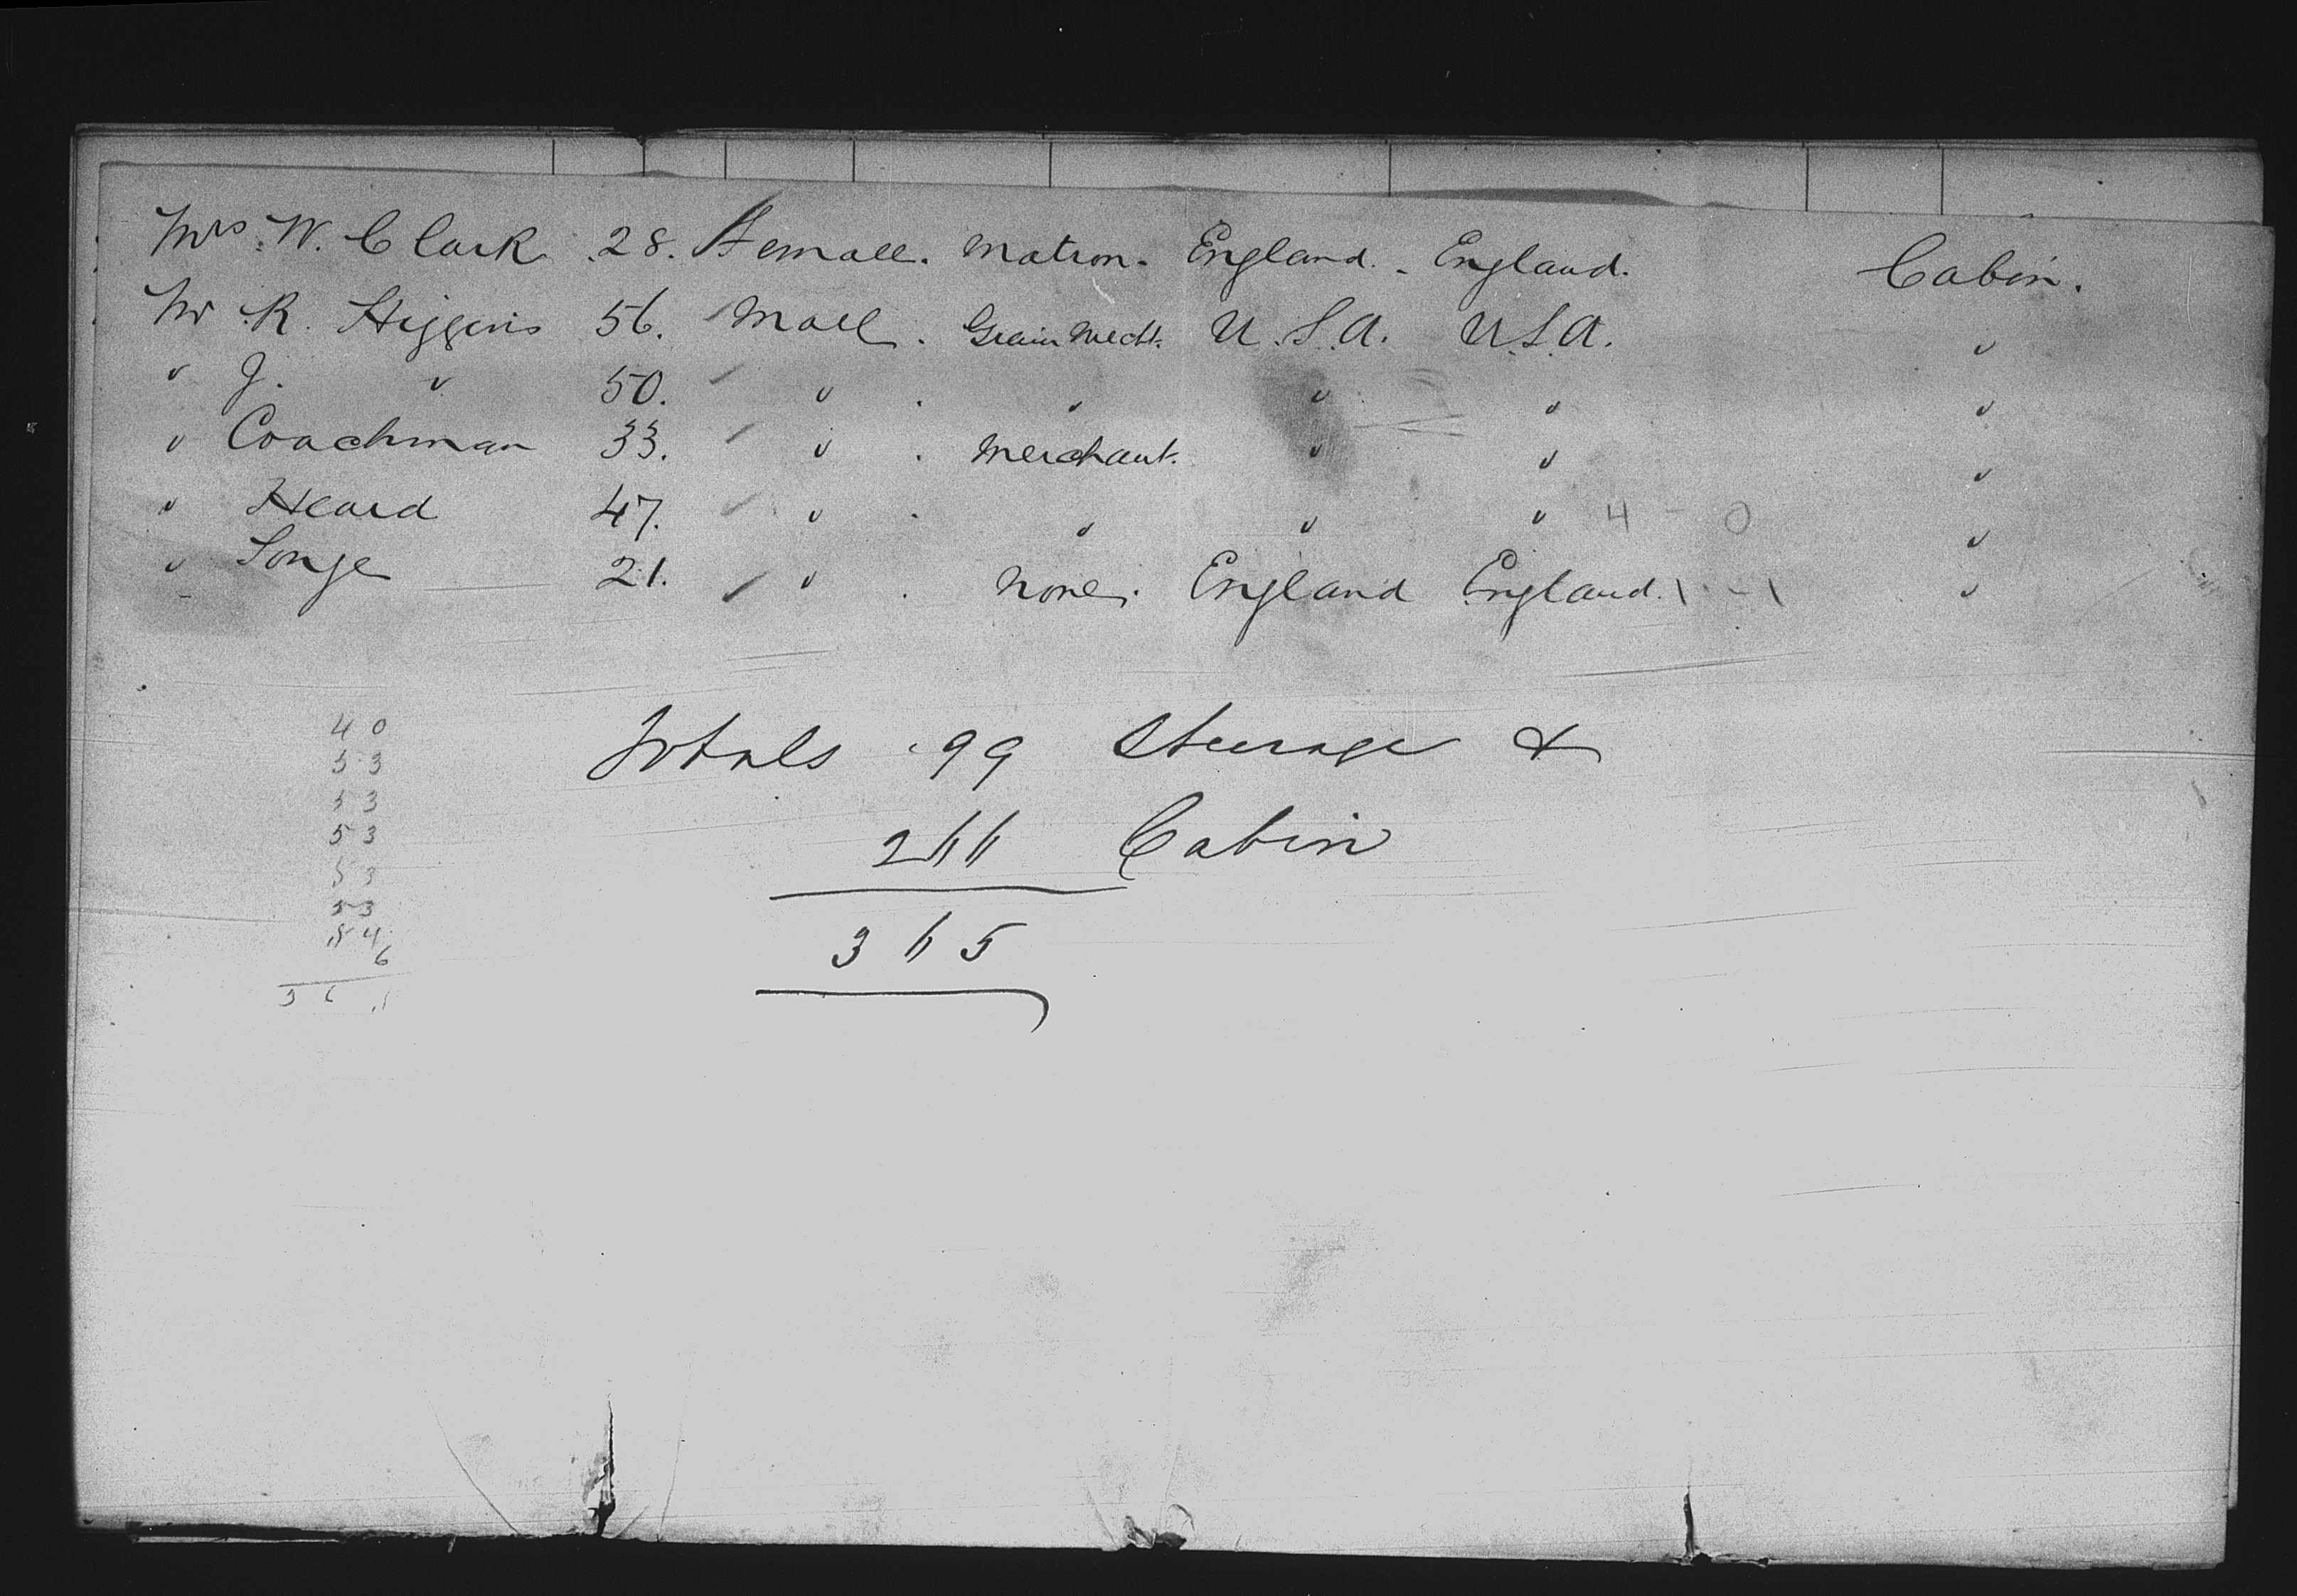 Mrs. W. Clark 28. Female. Matron. England. England. Cabin.
Mr R. Higgins 56. Male. Grain Mecht. U.S.A. U.S.A. "
" J. " 50. " . " " " "
" Coachman 33. " . Merchant. " " "
" Heard 47. " . " " " 4 - 0 "
" Songe 21. " . None. England England. 1 - 1 "
Totals 99 Steerage &
266 Cabin
365
40
53
53
53
53
53
54
6
365